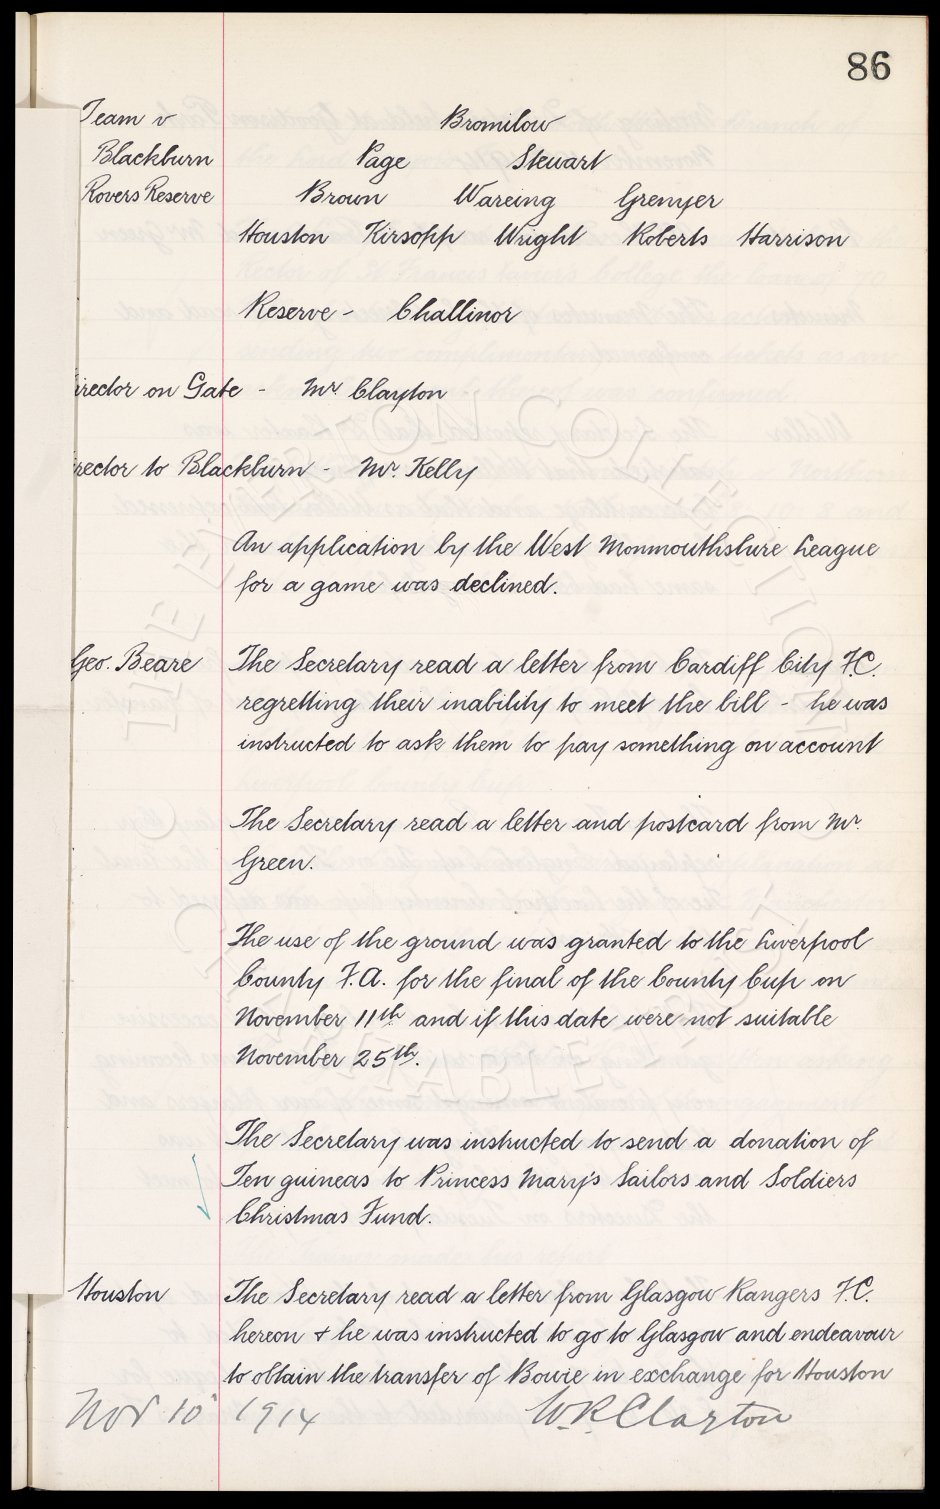 86
Team v Bromilow
Blackburn Page Stewart
Rovers Reserve Brown Wareing Grenyer
Houston Kirsopp Wright Roberts Harrison
Reserve - Challinor
irector on Gate - Mr Clayton
rector to Blackburn - Mr. Kelly
An application by the West Monmouthshire League
for a game was declined.
Geo. Beare The Secretary read a letter from Cardiff City F.C.
regretting their inability to meet the bill - he was
instructed to ask them to pay something on account
The Secretary read a letter and postcard from Mr.
Green.
The use of the ground was granted to the Liverpool
County F.A. for the final of the County Cup on
November 11th and if this date were not suitable
November 25th.
The Secretary was instructed to send a donation of
Ten guineas to Princess Mary's Sailors and Soldiers
Christmas Fund.
Houston The Secretary read a letter from Glasgow Rangers F.C.
hereon & he was instructed to go to Glasgow and endeavour
to obtain the transfer of Bowie in exchange for Houston
Nov 10 1914 W.R. Clayton
THE EVERTON COLLECTION
CHARITABLE TRUST